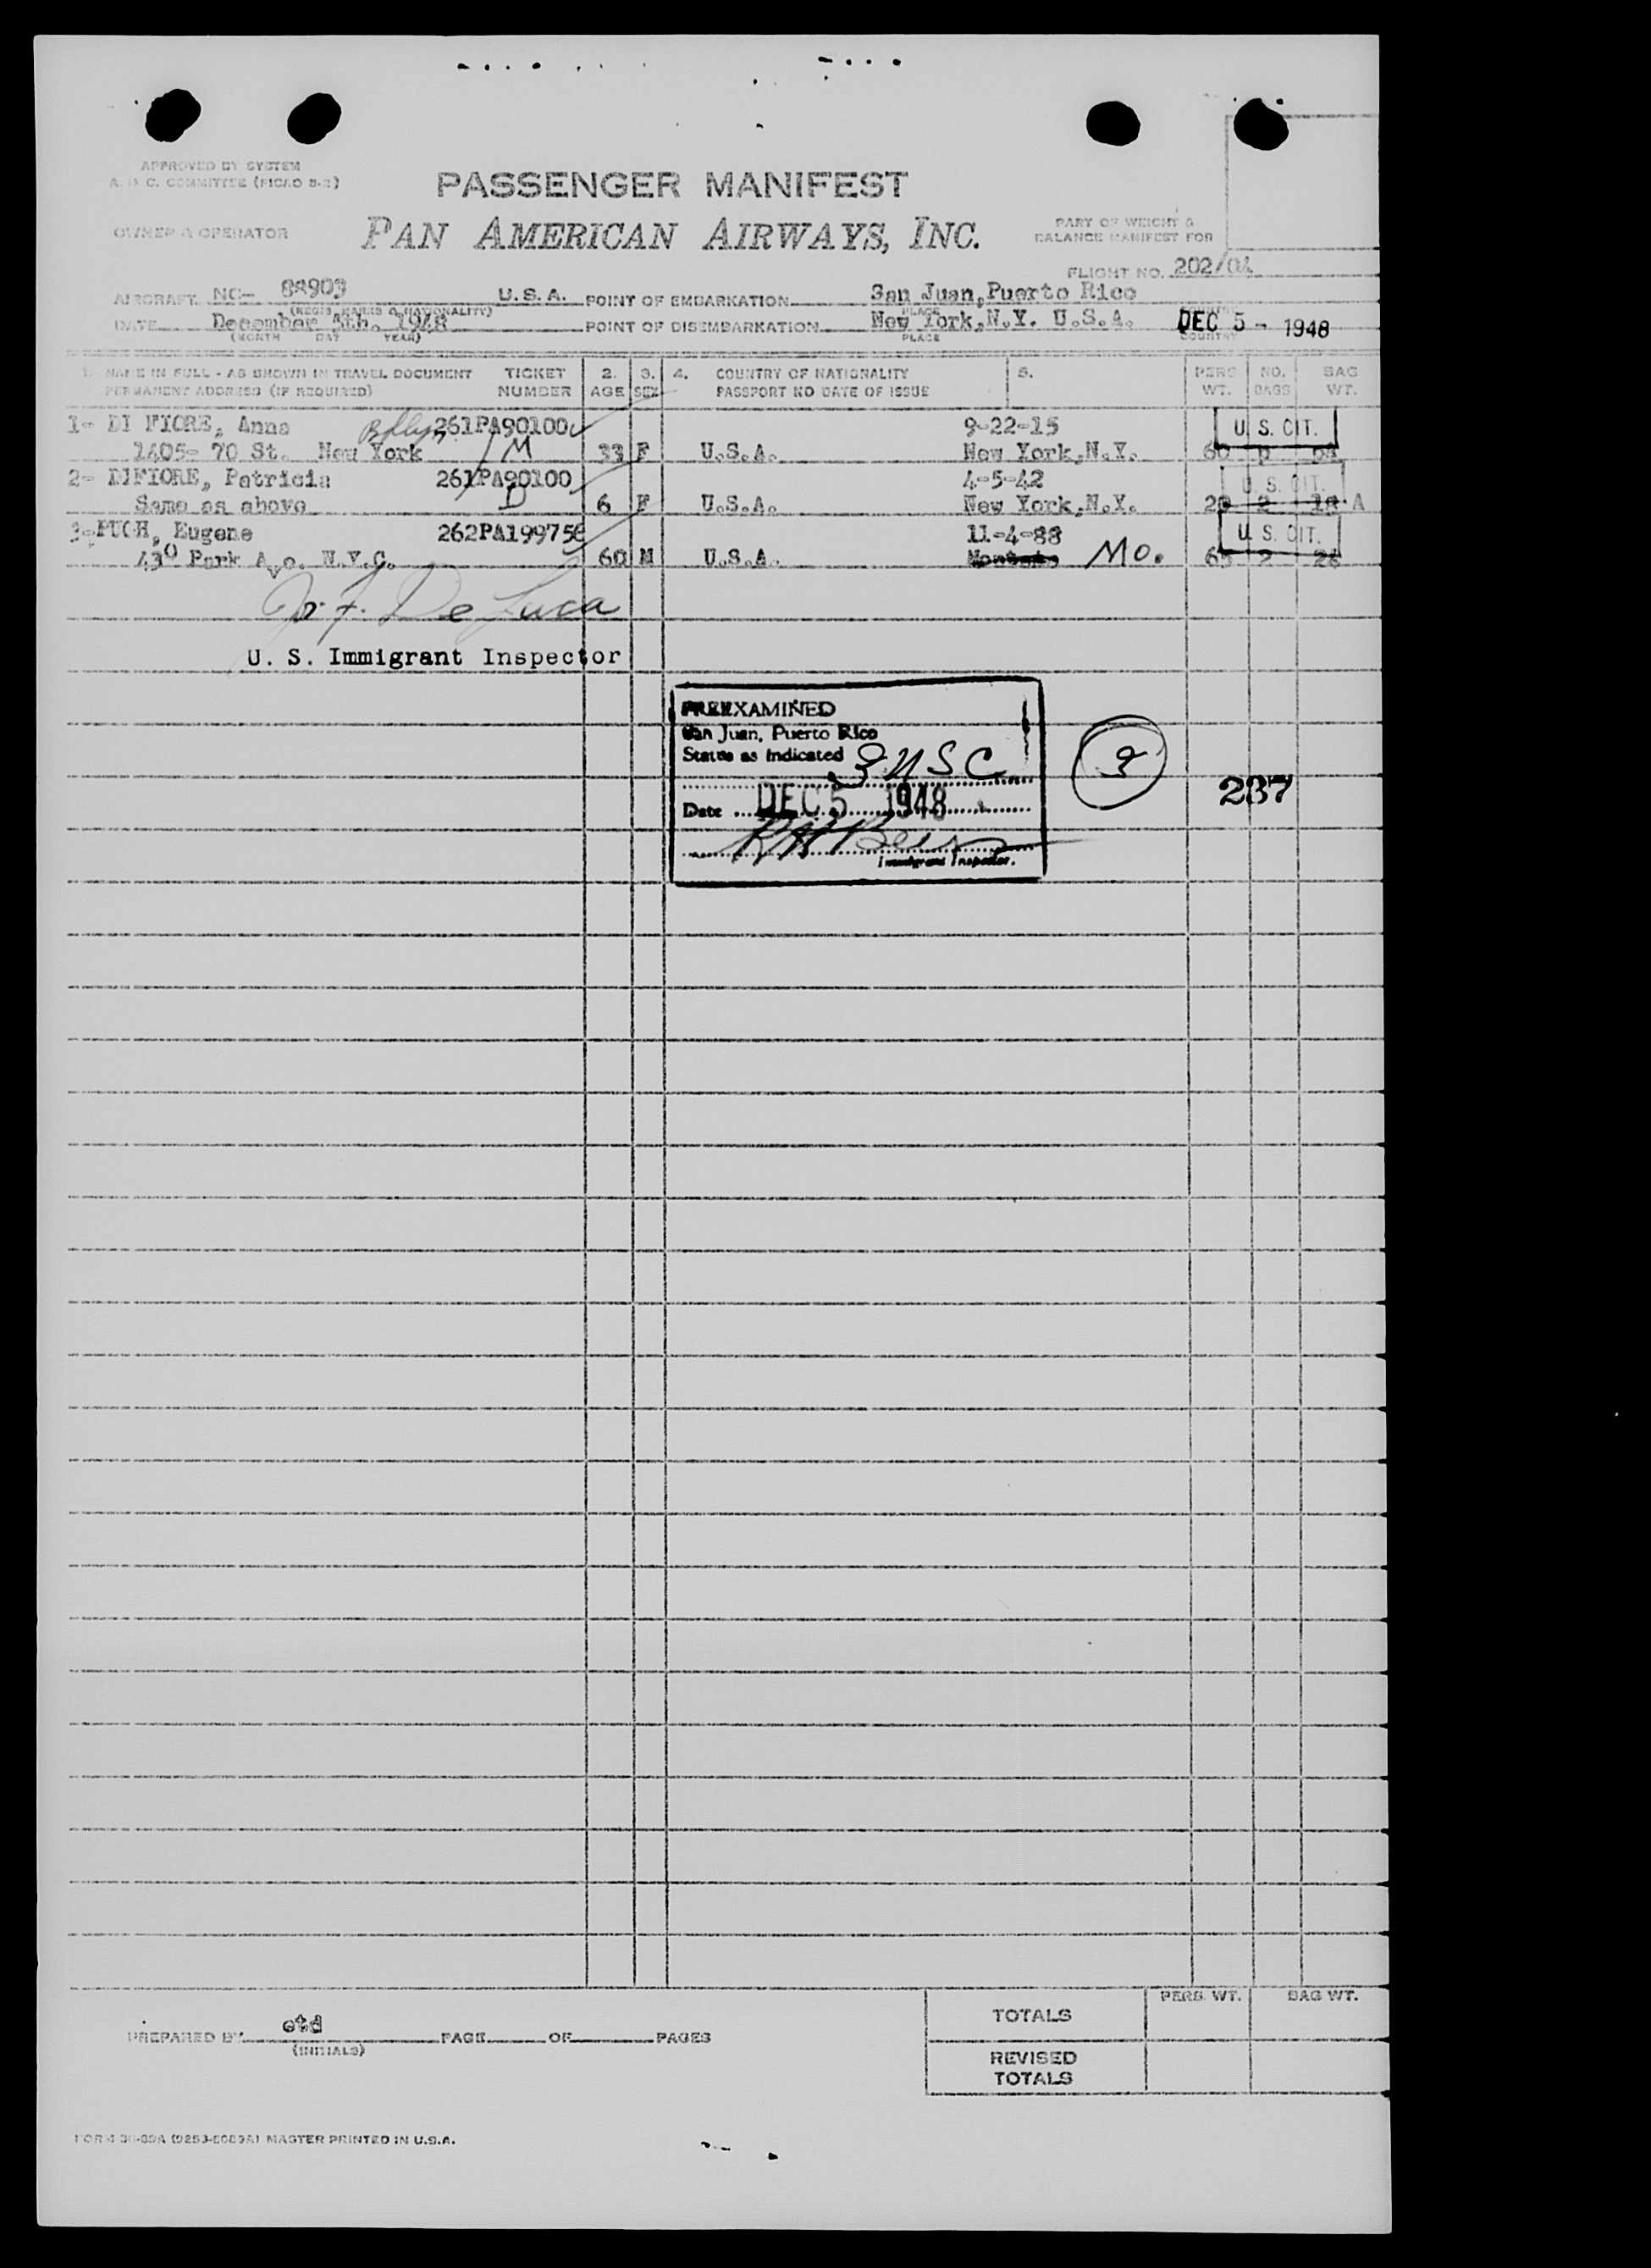 APPROVED BY SYSTEM
A. D. C. COMMITTEE (PICAO B-2)
PASSENGER MANIFEST
OWNER & OPERATOR
PAN AMERICAN AIRWAYS, INC.
PART OF WEIGHT &
BALANCE MANIFEST FOR
FLIGHT NO. 202/04
AIRCRAFT NC- 88903 U.S.A. POINT OF EMBARKATION San Juan, Puerto Rico
(REGIS. MARKS & NATIONALITY) PLACE COUNTRY
DATE December 5th. 1948 POINT OF DISEMBARKATION New York, N.Y. U.S.A. DEC 5 - 1948
(MONTH DAY YEAR) PLACE COUNTRY
1. NAME IN FULL - AS SHOWN IN TRAVEL DOCUMENT TICKET 2. 3. 4. COUNTRY OF NATIONALITY 5. PERS NO. BAG
PERMANENT ADDRESS (IF REQUIRED) NUMBER AGE SEX PASSPORT NO DATE OF ISSUE WT. BAGS WT.
1- DI FIORE, Anna Bklyn 261PA90100 9-22-15 U.S. CIT.
1405- 70 St. New York M 33 F U.S.A. New York, N.Y. 60
2- DIFIORE, Patricia 261PA90100 4-5-42 U.S. CIT.
Same as above D 6 F U.S.A. New York, N.Y. 2 A
3-PUGH, Eugene 262PA199756 11-4-88 U.S. CIT.
430 Park Ave. N.Y.C. 60 M U.S.A. MO. 2
De Luca
U. S. Immigrant Inspector
PREEXAMINED
San Juan, Puerto Rico
Status as Indicated 3 USC 3
Date DEC 5 1948 237
Immigrant Inspector.
PERS. WT. BAG WT.
TOTALS
PREPARED BY etd PAGE OF PAGES
(INITIALS)
REVISED
TOTALS
MASTER PRINTED IN U.S.A.